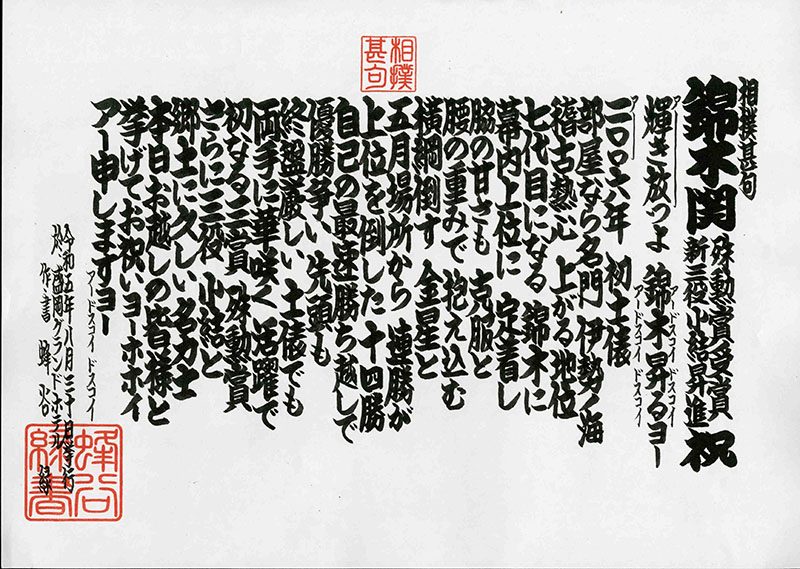 相撲甚句
相撲甚句
錦木関 殊勲賞受賞 新三役小結昇進 祝
アー
輝き放つよ 錦木昇るヨー
アードスコイ ドスコイ
アードスコイ ドスコイ
アー
二〇〇六年 初土俵
部屋なら名門 伊勢ノ海
稽古熱心 上がる地位
七代目になる 錦木に
幕内上位に 定着し
脇の甘さも 克服と
腰の重みで 抱え込む
横綱倒す 金星と
五月場所から 連勝が
上位を倒した 十四勝
自己の最速勝ち越しで
優勝争い 先頭も
終盤厳しい 土俵でも
両手に華咲く 活躍で
初なる三賞 殊勲賞
さらに三役 小結と
郷土に久しい 名力士
本日お越しの皆様と
挙げてお祝いヨーホホイ
アー申しますヨー
アードスコイ ドスコイ
令和五年八月三十日挙行
於 盛岡グランドホテル
作・書 蜂谷 緑
蜂谷緑書